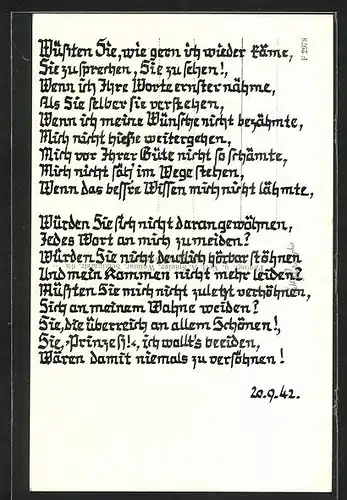 Wüßten Sie, wie gern ich wieder käme,
Sie zu sprechen, Sie zu sehen!,
Wenn ich Ihre Worte ernster nähme,
Als Sie selber sie verstehen,
Wenn ich meine Wünsche nicht bezähmte,
Mich nicht hieße weitergehen,
Mich vor Ihrer Güte nicht so schämte,
Mich nicht säh' im Wege stehen,
Wenn das bess're Wissen mich nicht lähmte,
Würden Sie sich nicht daran gewöhnen,
Jedes Wort an mich zu meiden?
Würden Sie nicht deutlich hörbar stöhnen
Und mein Kommen nicht mehr leiden?
Müßten Sie mich nicht zuletzt verhöhnen,
Sich an meinem Wahne weiden?
Sie, die überreich an allem Schönen!,
Sie, „Prinzeß!“, ich wollt's beeiden,
Wären damit niemals zu versöhnen!
20.9.42.
F 2978